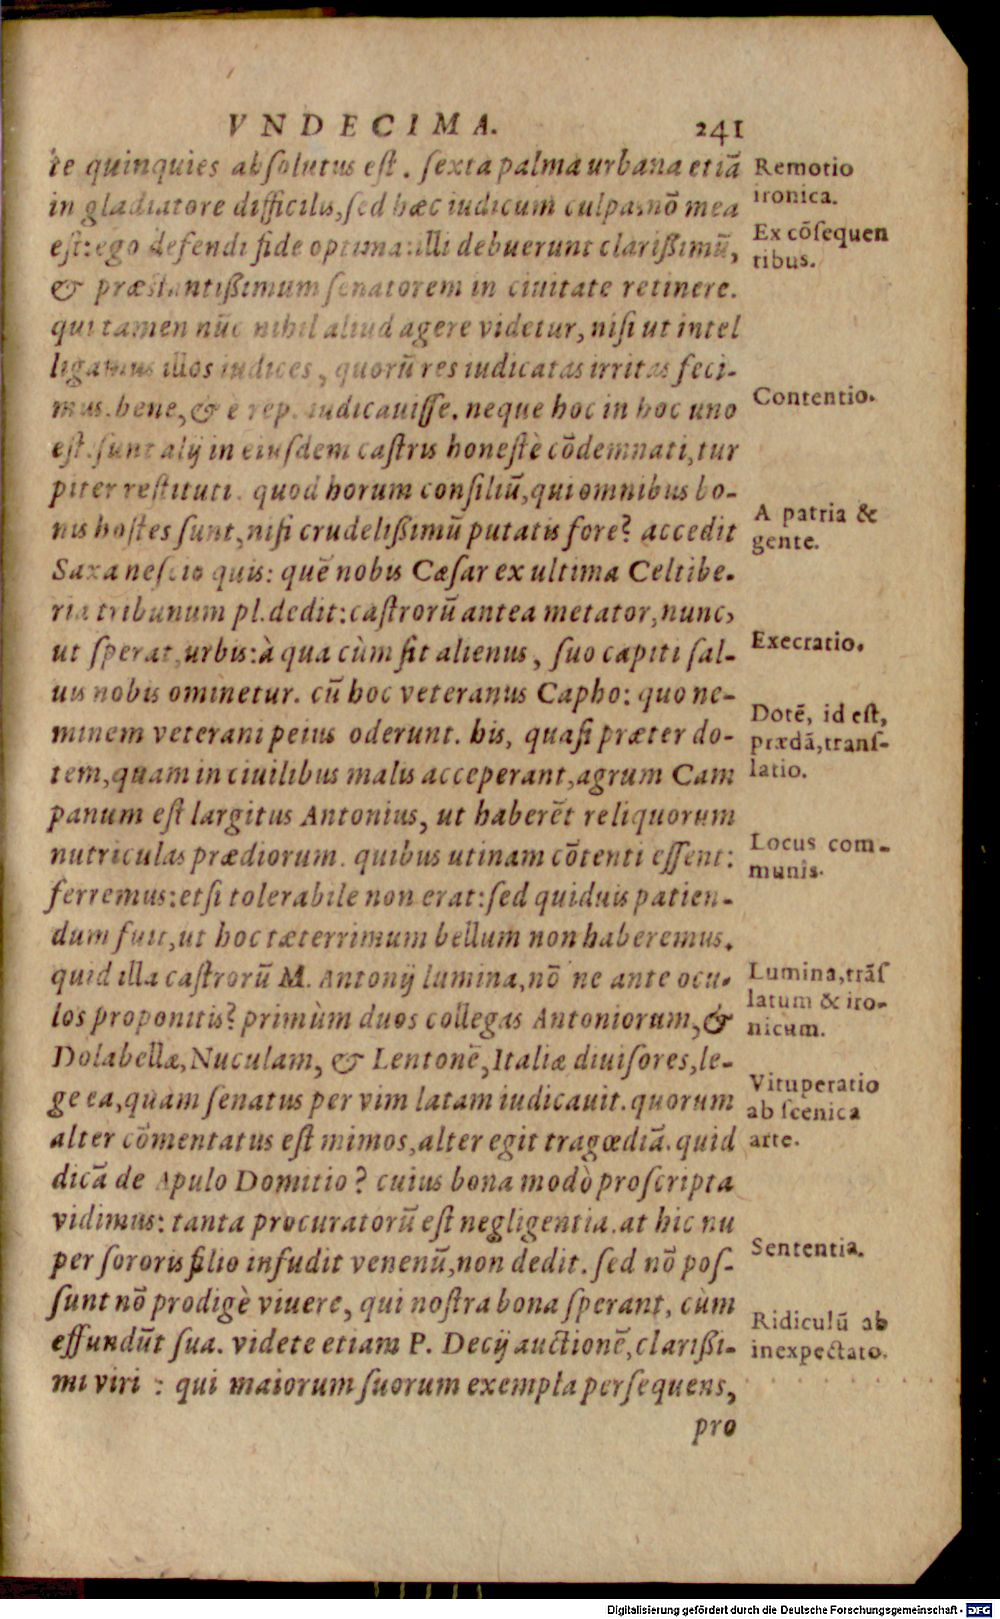 VNDECIMA. 241
te quinquies absolutus est. sexta palma urbana etiā
in gladiatore difficilis, sed hæc iudicum culpa: nō mea
est: ego defendi fide optima: illi debuerunt clarißimū,
& præstantißimum senatorem in ciuitate retinere.
qui tamen nūc nihil aliud agere videtur, nisi ut intel
ligamus illos iudices, quorū res iudicatas irritas feci-
mus. bene, & è rep. iudicauisse. neque hoc in hoc uno
est. sunt alij in eiusdem castris honestè cōdemnati, tur
piter restituti. quod horum consiliū, qui omnibus bo-
nis hostes sunt, nisi crudelißimū putatis fore? accedit
Saxa nescio quis: quē nobis Cæsar ex ultima Celtibe-
ria tribunum pl. dedit: castrorū antea metator, nunc,
ut sperat, urbis: à qua cùm sit alienus, suo capiti sal-
uis nobis ominetur. cū hoc veteranus Capho: quo ne-
minem veterani peius oderunt. his, quasi præter do-
tem, quam in ciuilibus malis acceperant, agrum Cam
panum est largitus Antonius, ut haberēt reliquorum
nutriculas prædiorum. quibus utinam cōtenti essent:
ferremus: etsi tolerabile non erat: sed quiduis patien-
dum fuit, ut hoc tæterrimum bellum non haberemus.
quid illa castrorū M. Antonij lumina, nōne ante ocu-
los proponitis? primùm duos collegas Antoniorum, &
Dolabellæ, Nuculam, & Lentonē, Italiæ diuisores, le-
ge ea, quam senatus per vim latam iudicauit. quorum
alter cōmentatus est mimos, alter egit tragœdiā. quid
dicā de Apulo Domitio? cuius bona modò proscripta
vidimus: tanta procuratorū est negligentia. at hic nu
per sororis filio infudit venenū, non dedit. sed nō pos-
sunt nō prodigè viuere, qui nostra bona sperant, cùm
effundūt sua. videte etiam P. Decij auctionē, clarißi-
mi viri: qui maiorum suorum exempla persequens,
pro
Remotio
ironica.
Ex cōsequen
tibus.
Contentio.
A patria &
gente.
Execratio.
Dotē, id est,
prædā, trans-
latio.
Locus com-
munis.
Lumina, trās
latum & iro-
nicum.
Vituperatio
ab scenica
arte.
Sententia.
Ridiculū ab
inexpectato.
Digitalisierung gefördert durch die Deutsche Forschungsgemeinschaft - DFG